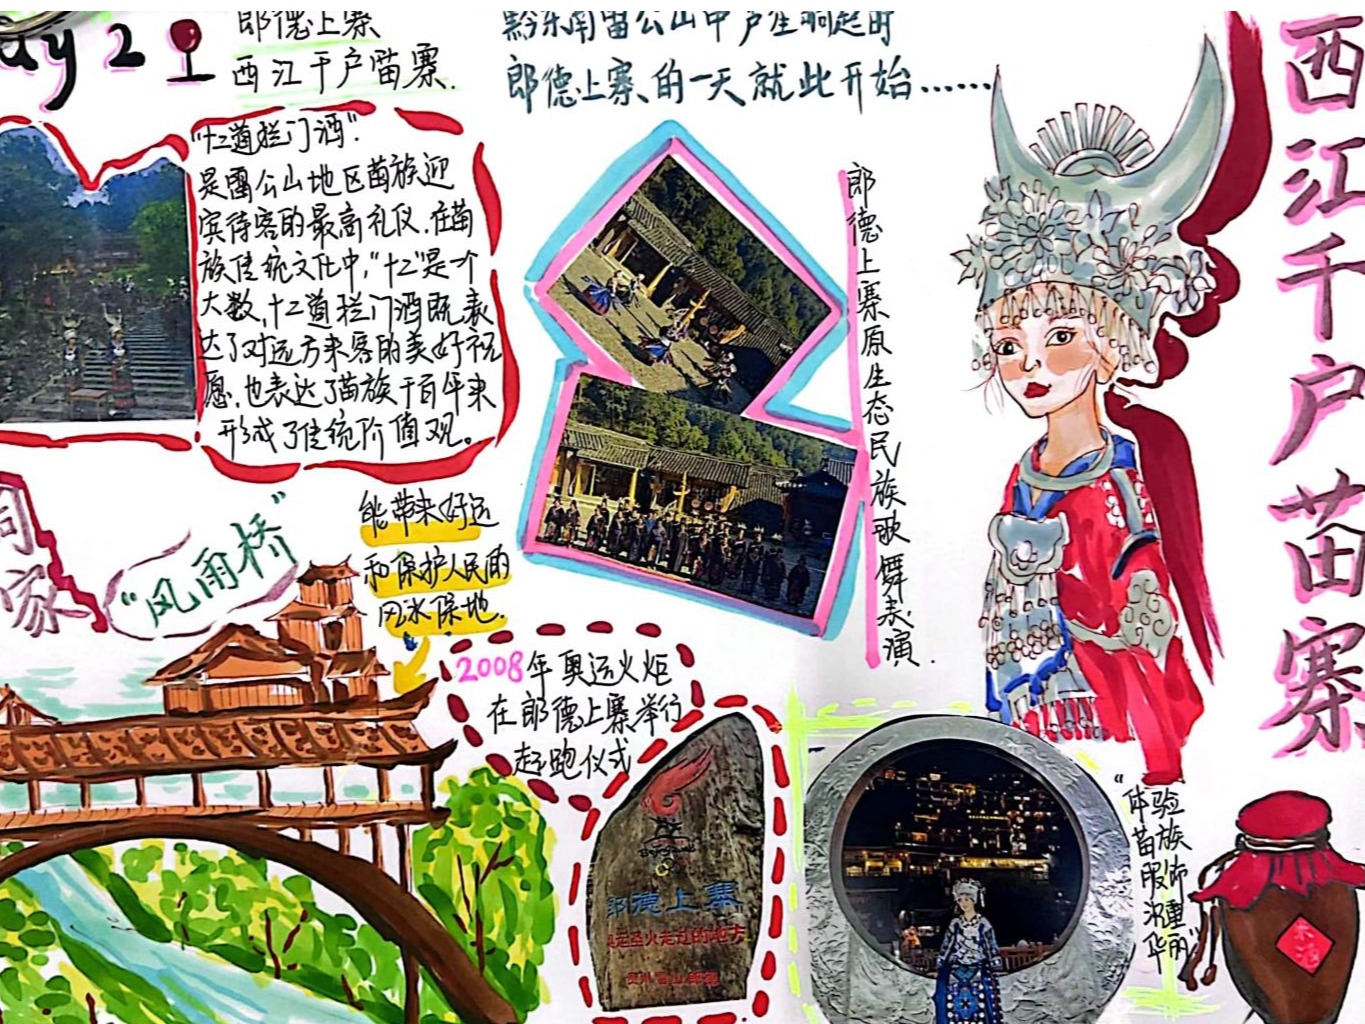 Day 2
郎德上寨
西江千户苗寨.
黔东南雷公山中芦笙响起时
郎德上寨的一天就此开始……
"十二道拦门酒".
是雷公山地区苗族迎
宾待客的最高礼仪.在苗
族传统文化中,"十二"是一个
大数,十二道拦门酒既表
达了对远方来客的美好祝
愿.也表达了苗族千百年来
形成了传统价值观。
郎德上寨原生态民族歌舞表演.
西江千户苗寨
"风雨桥"
能带来好运
和保护人民的
风水保地.
2008年奥运火炬
在郎德上寨举行
起跑仪式
郎德上寨
奥运圣火走过的地方
"体验
苗族
服饰
沉重
华丽"
米酒